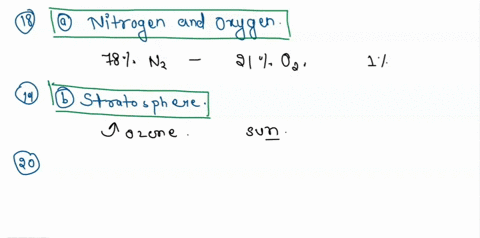 18 a Nitrogen and Oxygen.
78% N₂ - 21% O₂. 1%
19 b Stratosphere.
↑ Ozone. sun.
20